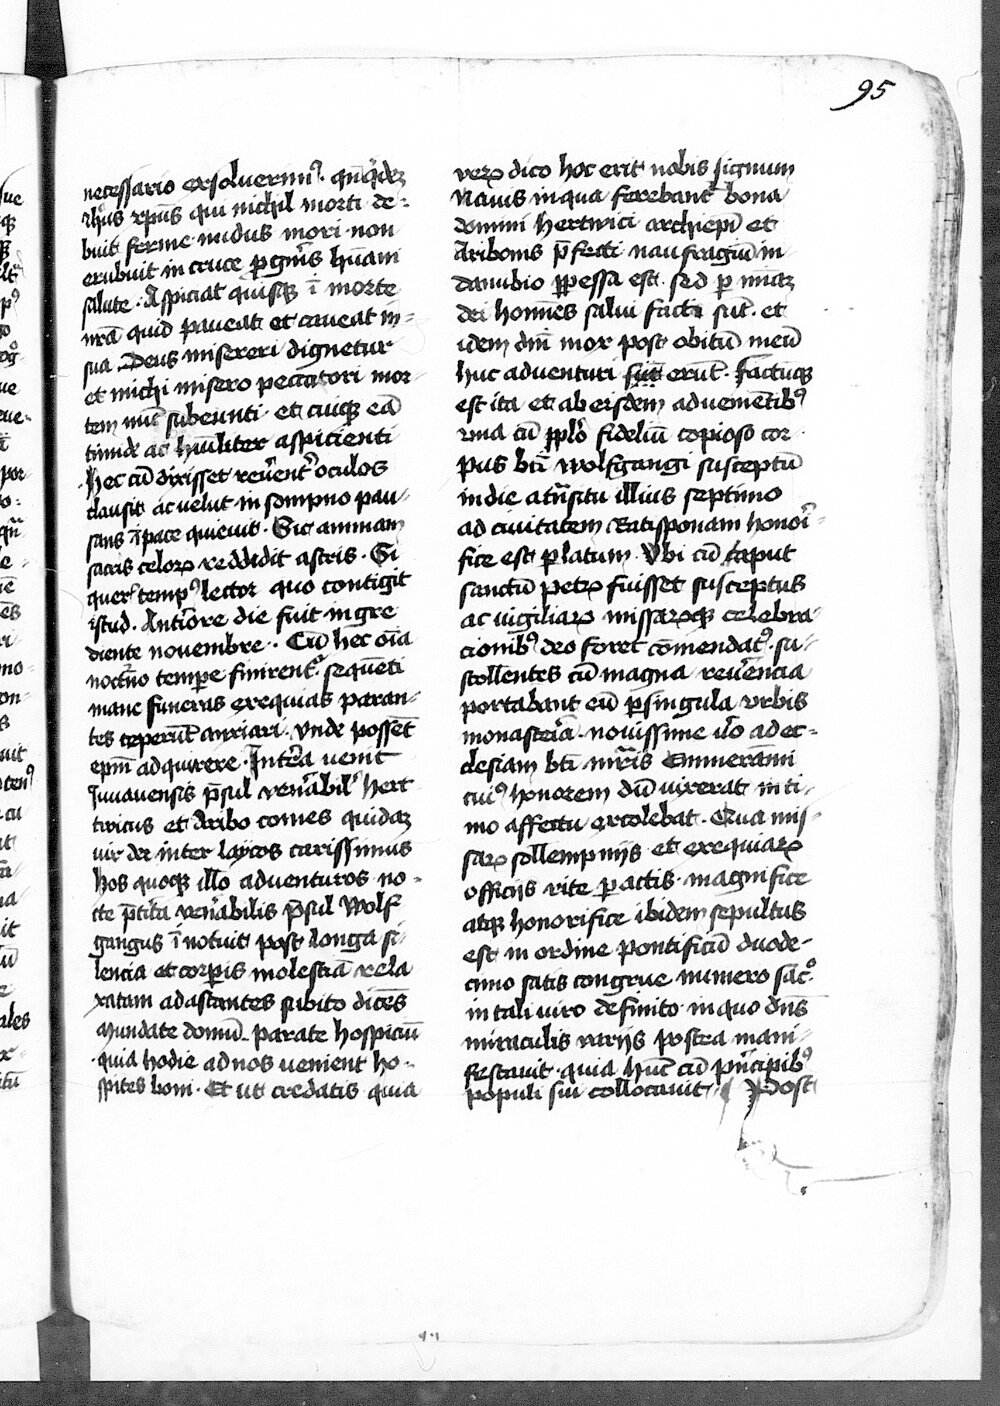 95
necessario exsoluerimꝰ. qn̄q̇dez
ih̄us xp̄us qui nichil morti de-
buit ferme nudus mori non
erubuit in cruce p̱ gn̄is hūani
salute. Aspiciat quisqꝫ ī morte
nrā quid paueat et caueat in-
sua. Deus misereri dignetur
et michi misero peccatori mor-
tem nūc subeunti. et cuiqꝫ eā
timide ac hūiliter aspicienti
Hec cū dixisset reūent͛ oculos
clausit ac velut in sompno pau-
sans ī pace quieuit. Sic animam
sacris celoꝝ reddidit astris. Si
quer͛ tempꝰ lector quo contigit
istud. Anti͛ore die fuit ingre
diente nouembre. Cū hec oīa
noctn͛o tempe finirent͛. sequēti
mane funeras exequias paran-
tes ceperūt anxiari. vnde possēt
ep̄m adquirere. Inte͛a venit
Juuauensis p̄sul ven͛abil͛ hert
wicus et Aribo comes quidaꝫ
vir dei inter laycos carissimus
hos quoqꝫ illo aduenturos no-
cte p̄tita ven͛abilis p̄sul Wolf
gangus īnotuit post longa si-
lencia et corp̱is molestiā rela
xatam adastantes subito dicēs
Mundate domū. parate hospiciū
quia hodie ad nos venient ho-
spites boni. Et ut credatis quia
veꝝ dico hoc erit nobis signum
Nauis in qua ferebant͛ bona
domini Hertwici archiep̄i et
Aribonis p̄fecti naufragiū in-
danubio p̱pessa est. sed p̱ miāꝫ
dei homīes salui facti sūt. et
idem dn̄i mox post obitū meū
huc aduenturi sūt erūt. Factūqꝫ
est ita et ab eisdem aduenientibꝰ
vna cū pplo͛ fideliū copioso cor
pus bt̄i wolfgangi susceptū
in die a tn̄situ illius septimo
ad ciuitatem Ratisponam honori-
fice est p̱latum. Vbi cū caput
sanctū petꝝ fuisset susceptus
ac vigiliaꝝ missaꝝqꝫ celebra
cionibꝰ deo foret cōmendatꝰ. su-
stollentes cū magna reūencia
portabant eū p̱ singula vrbis
monaste͛ia. nouissime v͛o ad ec-
clesiam bt̄i mr̄is Emmerammi
cuiꝰ honorem dū vixerat inti-
mo affectu excolebat. Qua mis-
saꝝ sollempnijs et exequiaꝝ
officijs rite p̱actis. magnifice
atqꝫ honorifice ibidem sepultus
est in ordine pontificū duode-
cimo satis congrue numero sāc͛.
in tali viro definito. in quo dn̄s
miraculis varijs postea mani-
festauit. quia hūc cū p͛ncipibꝰ
populi sui collocauit. Post